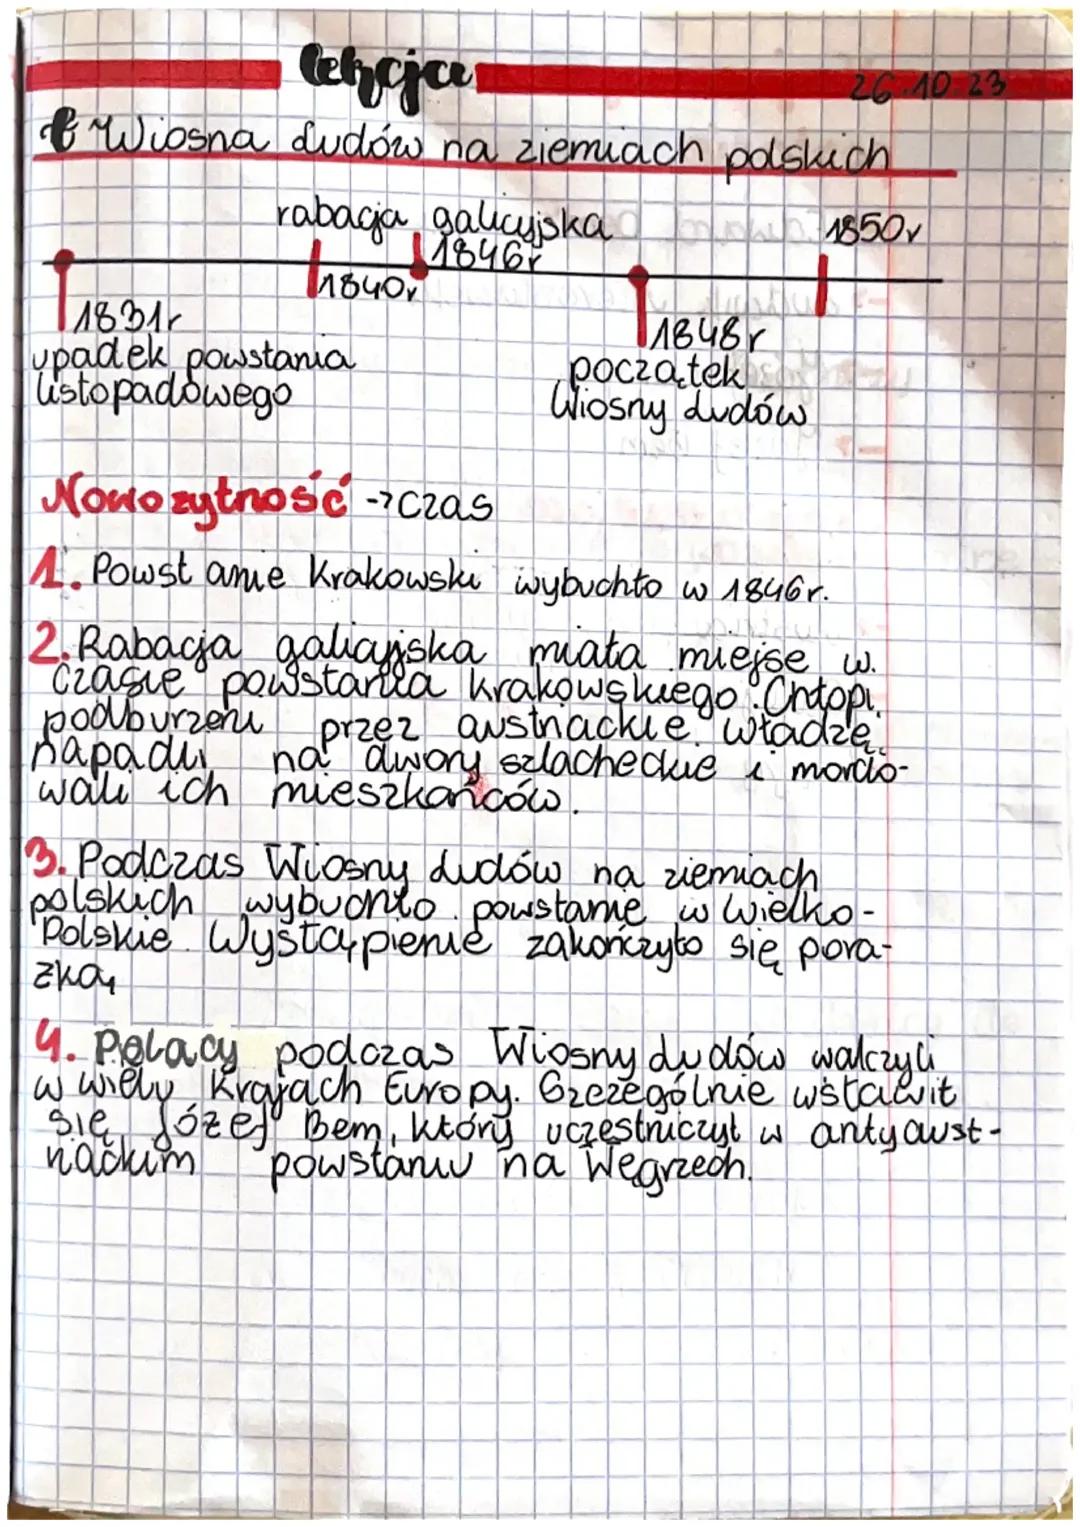 Lekcja
26.10.23
Wiosna Ludów na ziemiach polskich
rabacja galicyjska
1850r
1846r
1840r
1831r
upadek powstania
listopadowego
1848r
początek
Wiosny Ludów
Nowozytność -> czas
1. Powstanie Krakowski wybuchło w 1846r.
2. Rabacja galicyjska miała miejse w
czasie powstania krakowskiego. Chłopi
podburzeni przez austriackie władze
napadli na dwory szlacheckie i mordo-
wali ich mieszkańców.
3. Podczas Wiosny Ludów na ziemiach
polskich wybuchło powstanie w Wielko-
Polskie. Wystąpienie zakończyło się pora-
zką
4. Polacy podczas Wiosny Ludów walczyli
w wielu Krajach Europy. Szczególnie wsławił
się Józef Bem, który uczęstniczył w antyaust-
riackim powstaniu na Węgrzech.